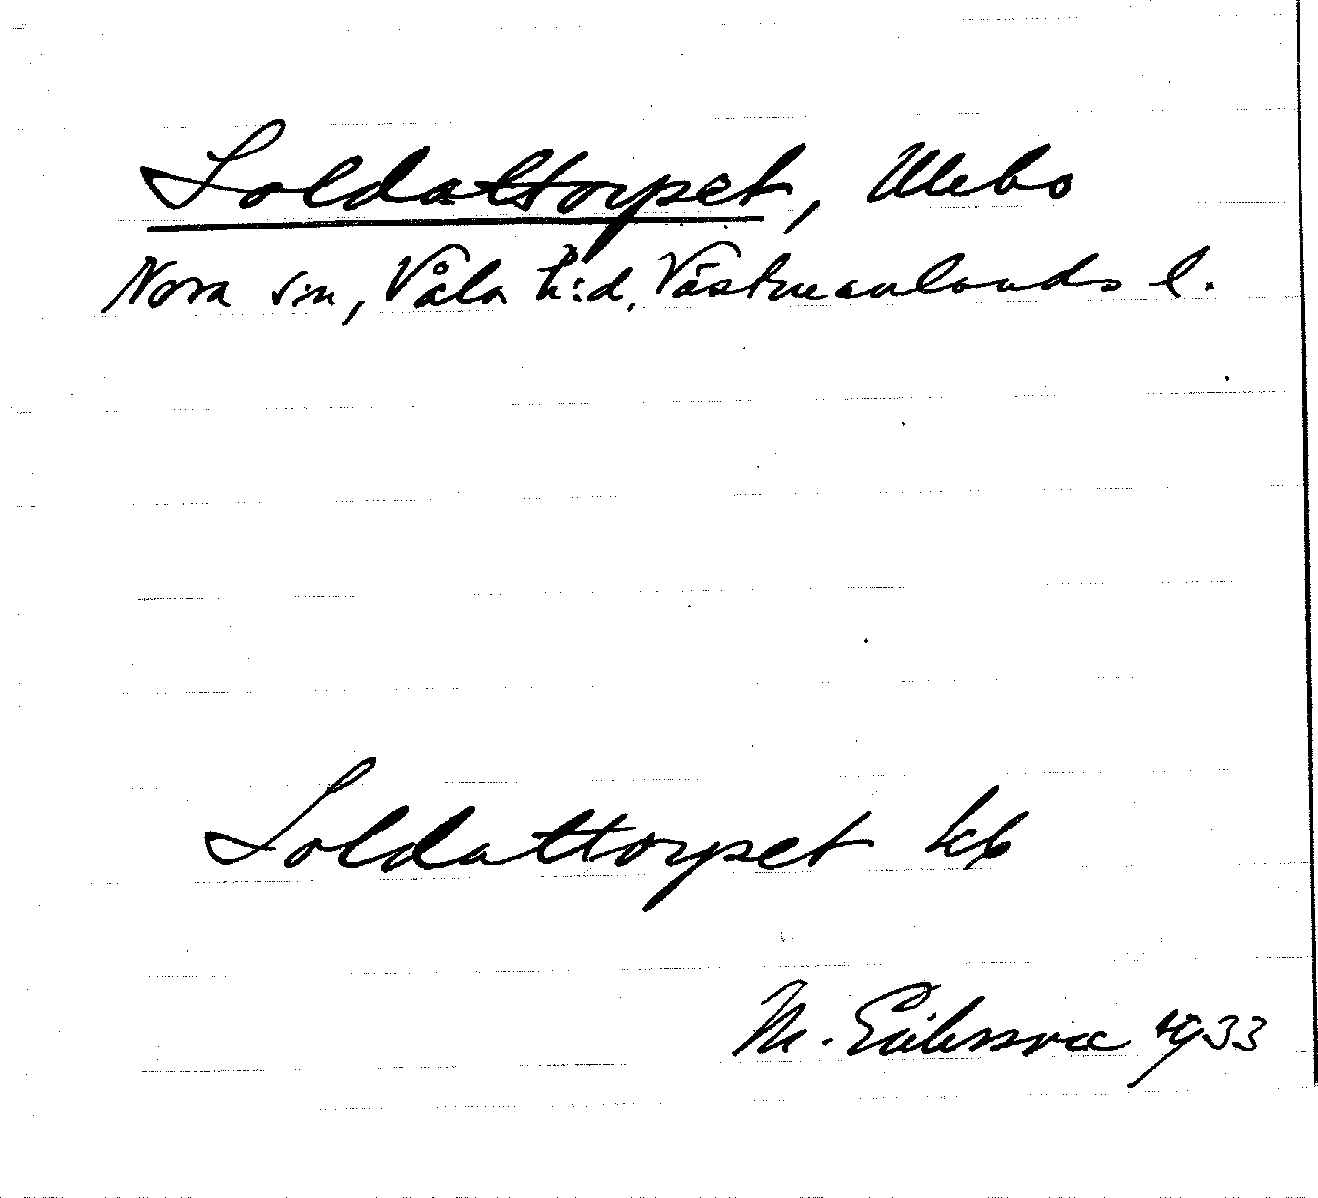 Soldattorpet, Ulebo
Nora sn, Våla h:d, Västmanlands l.
Soldattorpet kb
M. Eriksson 1933